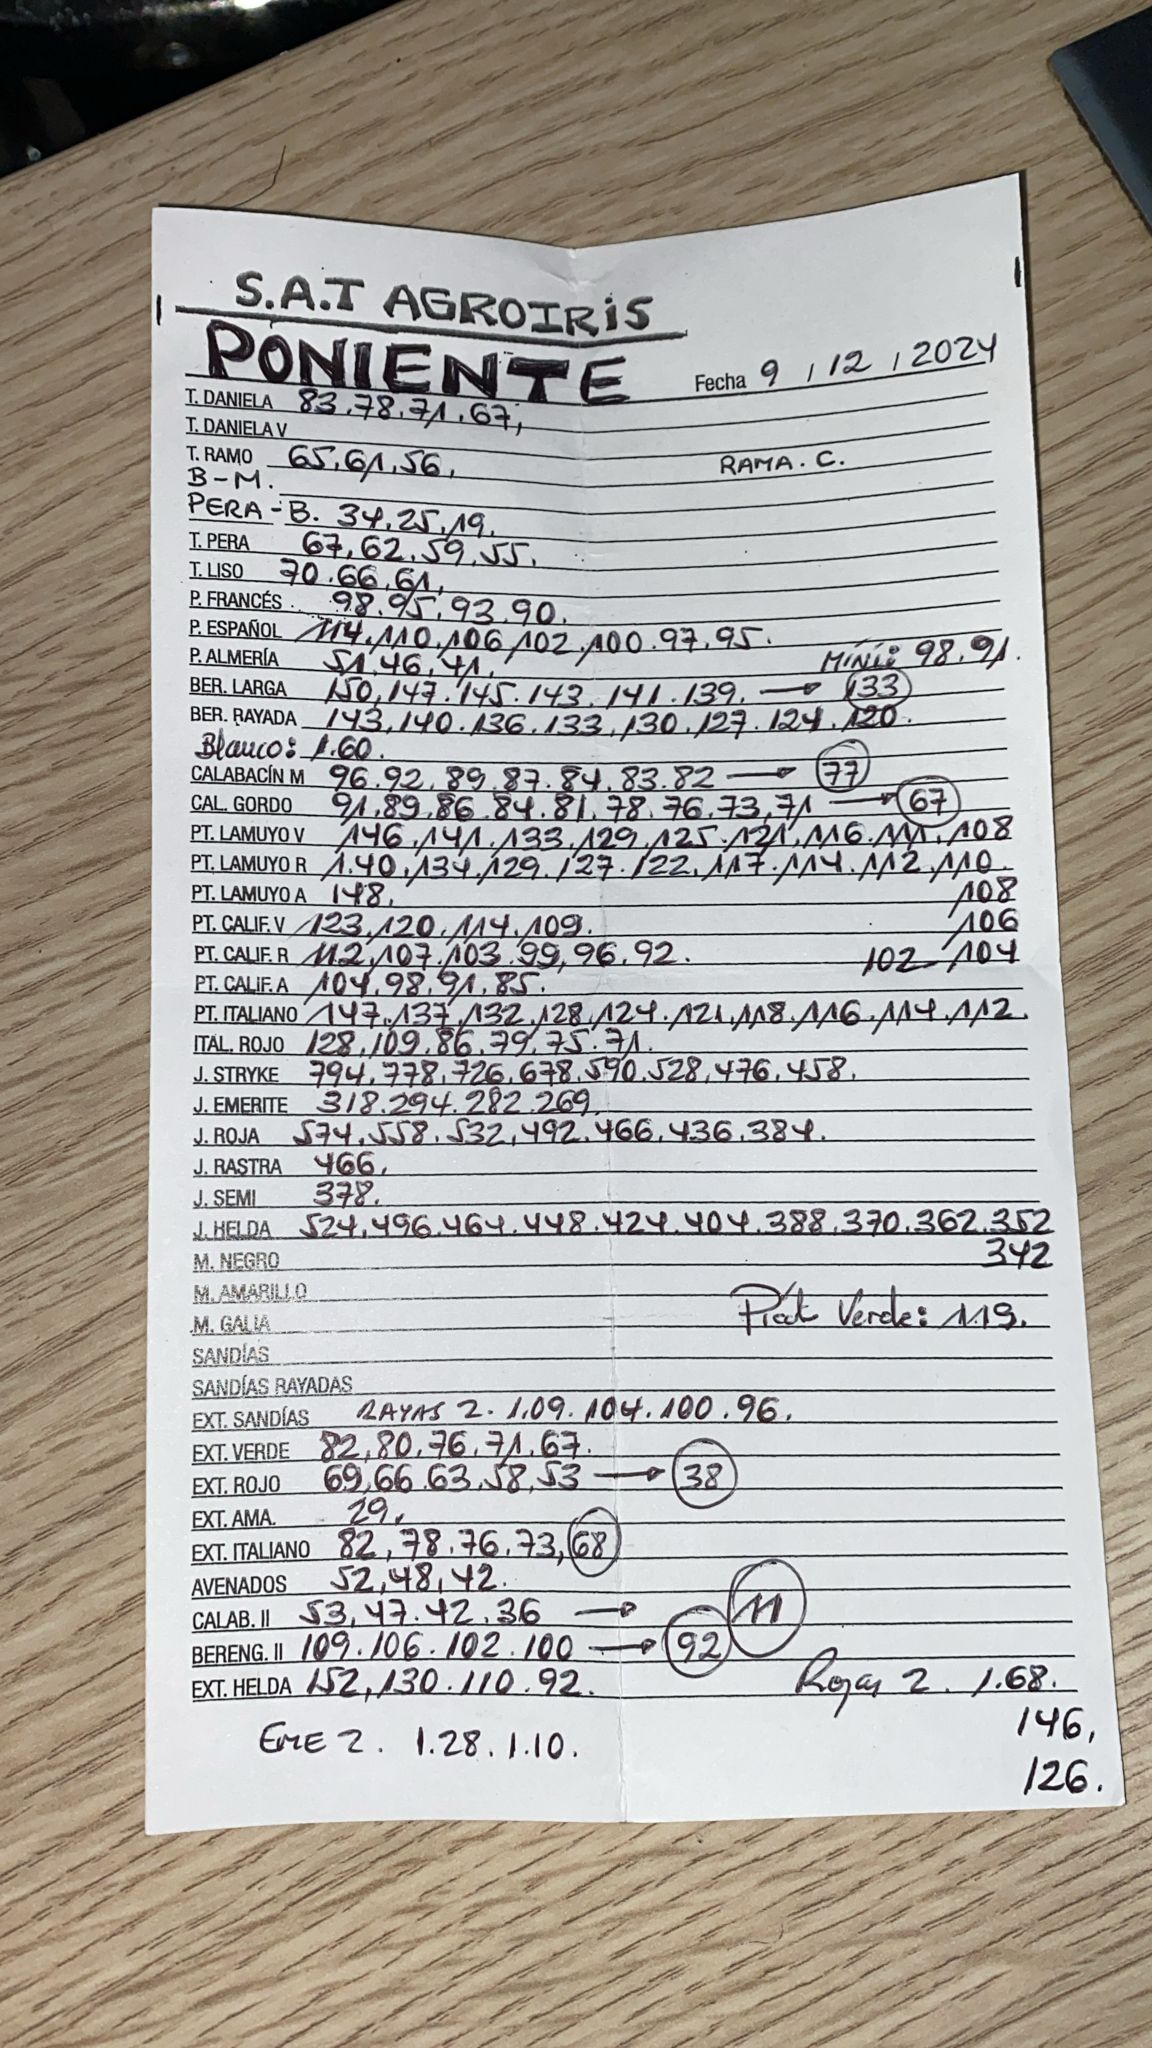 S.A.T AGROIRIS
PONIENTE Fecha 9 / 12 / 2024
T. DANIELA 83.78.71.67,
T. DANIELA V
T. RAMO 65.61.56. RAMA. C.
B-M.
PERA-B. 34.25.19.
T. PERA 67,62.59.55.
T. LISO 70.66.61,
P. FRANCÉS 98.95.93.90.
P. ESPAÑOL 114.110.106,102.100.97.95.
P. ALMERÍA 51.46.41. Míni: 98.91.
BER. LARGA 150,147.145.143.141.139. → 133
BER. RAYADA 143,140.136.133,130,127.124.120.
Blanco: 1.60.
CALABACÍN M 96.92,89.87.84.83.82 → 77
CAL. GORDO 91,89,86.84.81.78.76.73,71 → 67
PT. LAMUYO V 146,141,133,129,125.121,116.111,108
PT. LAMUYO R 1.40,134,129.127.122,117.114.112.110.
PT. LAMUYO A 148. 108
PT. CALIF. V 123,120,114.109. 106
PT. CALIF. R 112,107.103.99,96.92. 102-104
PT. CALIF. A 104,98,91.85.
PT. ITALIANO 147.137,132,128,124.121,118.116.114.112.
ITAL. ROJO 128,109.86.79.75.71.
J. STRYKE 794.778,726,678,590.528,476.458.
J. EMERITE 318.294.282.269.
J. ROJA 574,558.532,492.466,436.384.
J. RASTRA 466.
J. SEMI 378.
J. HELDA 524,496.464.448.424.404.388,370.362.352
M. NEGRO 342
M. AMARILLO
M. GALIA Picat Verde: 119.
SANDÍAS
SANDÍAS RAYADAS
EXT. SANDÍAS RAYAS 2. 1.09.104.100.96.
EXT. VERDE 82,80,76,71.67.
EXT. ROJO 69,66.63,58,53 → 38
EXT. AMA. 29.
EXT. ITALIANO 82,78.76.73,68
AVENADOS 52,48,42.
CALAB. II 53,47.42.36 → 11
BERENG. II 109.106.102.100 → 92
EXT. HELDA 152,130.110.92. Rojas 2. 1.68.
146,
EME 2. 1.28.1.10.
126.